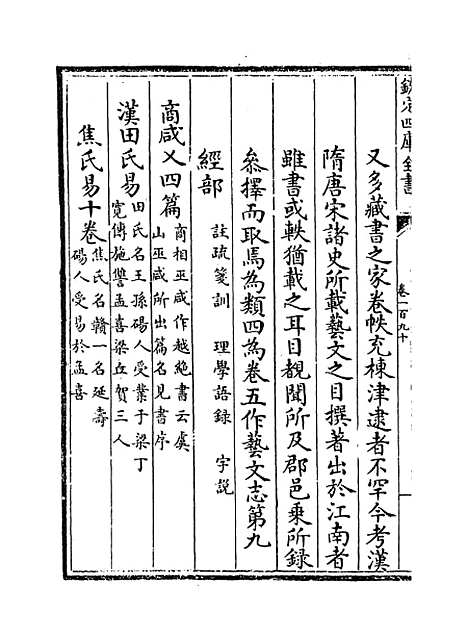 欽定四庫全書
卷一百九十
又多藏書之家卷帙充棟津逮者不罕今考漢
隋唐宋諸史所載藝文之目撰著出於江南者
雖書或軼猶載之耳目覩聞所及郡邑乗所録
叅擇而取焉為類四為卷五作藝文志第九
經部 註疏箋訓 理學語録 字説
商咸乂四篇 商相巫咸作越絶書云虞
山巫咸所出篇名見書序
漢田氏易 田氏名王孫碭人受業于梁丁
寛傳施讐孟喜梁丘賀三人
焦氏易十卷 焦氏名贛一名延壽
碭人受易於孟喜